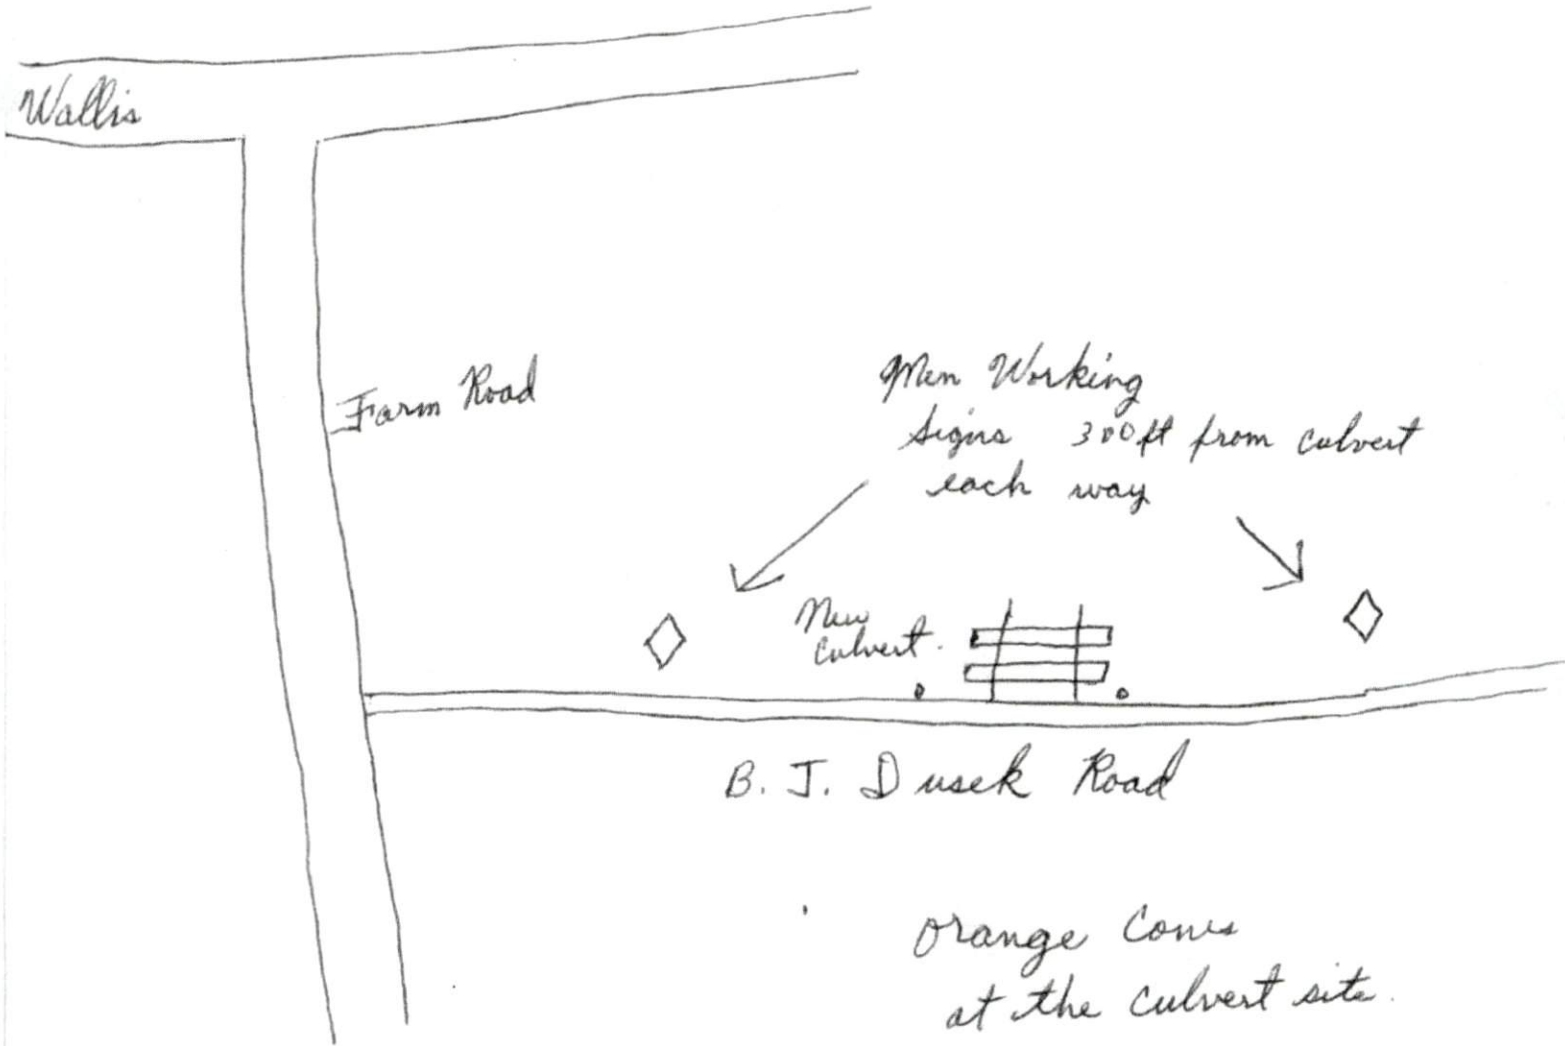 Wallis
Farm Road
Men Working
Signs 300ft from culvert
each way
New
Culvert.
B. J. Dusek Road
Orange Cones
at the culvert site.